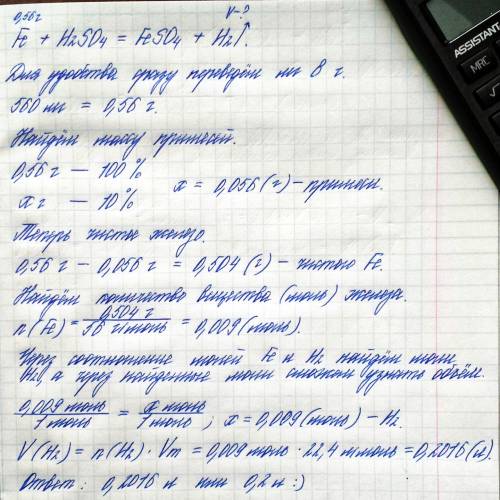 0,56г V-?
Fe + H2SO4 = FeSO4 + H2↑.
Для удобства сразу переведём мг в г.
560 мг = 0,56 г.
Найдём массу примесей.
0,56 г — 100%
х г — 10%
х = 0,056 (г) - примеси.
Теперь чистое железо.
0,56 г - 0,056 г = 0,504 (г) - чистого Fe.
Найдём количество вещества (моль) железа.
n(Fe) = 0,504 г / 56 г/моль = 0,009 (моль).
Через соотношение молей Fe и H2 найдём моли
H2, а через найденные моли сможем узнать объём.
0,009 моль / 1 моль = х моль / 1 моль ; х = 0,009 (моль) - H2.
V(H2) = n(H2) · Vm = 0,009 моль · 22,4 л/моль = 0,2016 (л).
Ответ: 0,2016 л или 0,2 л :)
ASSISTANT
MRC
√